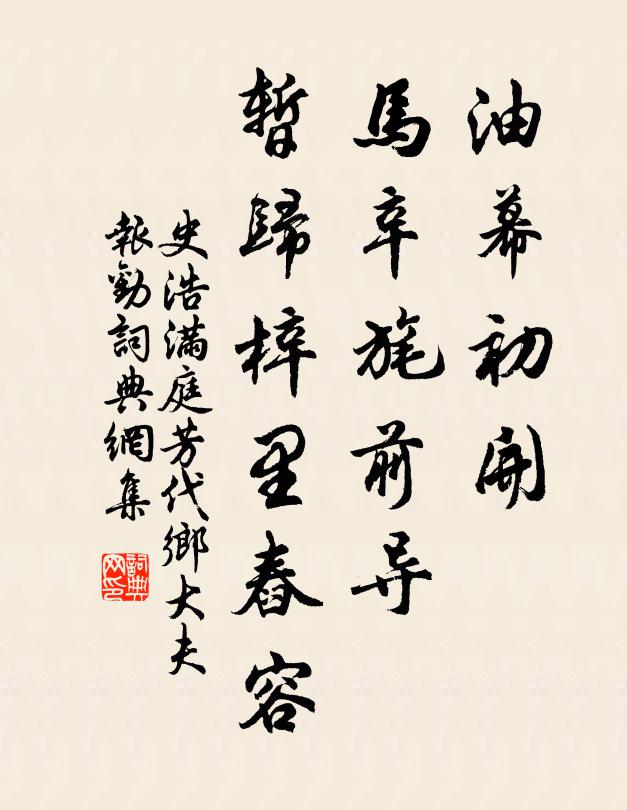 油幕初開
馬卒旄前导
暫歸梓里春容
史浩滿庭芳代鄉大夫
報勸詞典網集
詞典网印